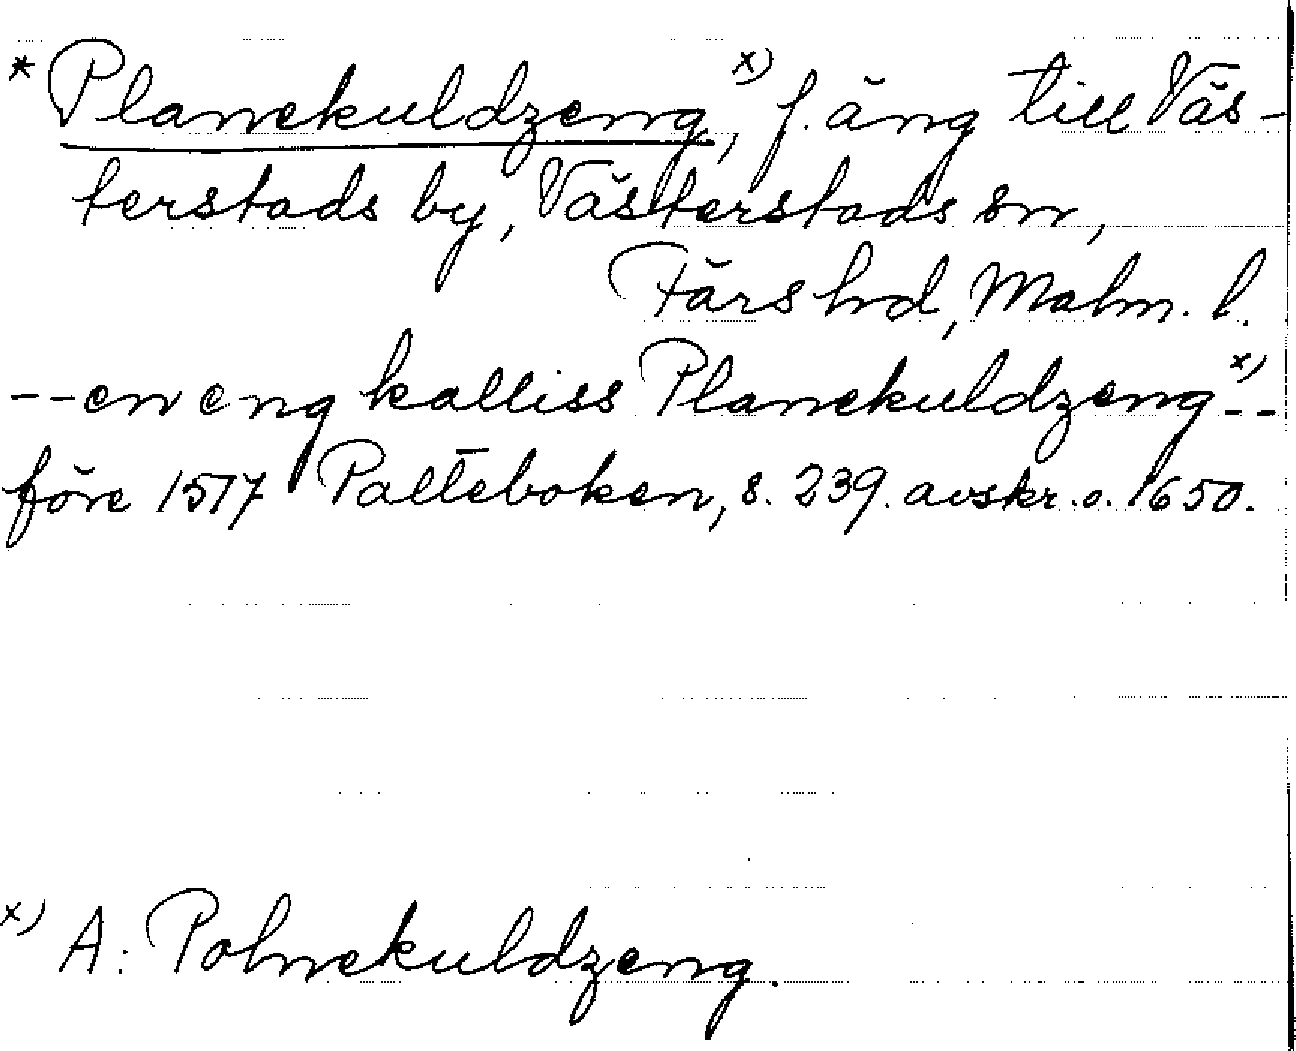 * Planekuldzeng, x) f. äng till Väs-
terstads by, Västerstads sn,
Färs hd, Malm. l.
-- en eng kalliss Planekuldzeng x) --
före 1517 Palteboken, s. 239. avskr. o. 1650.
x) A: Polnekuldzeng.